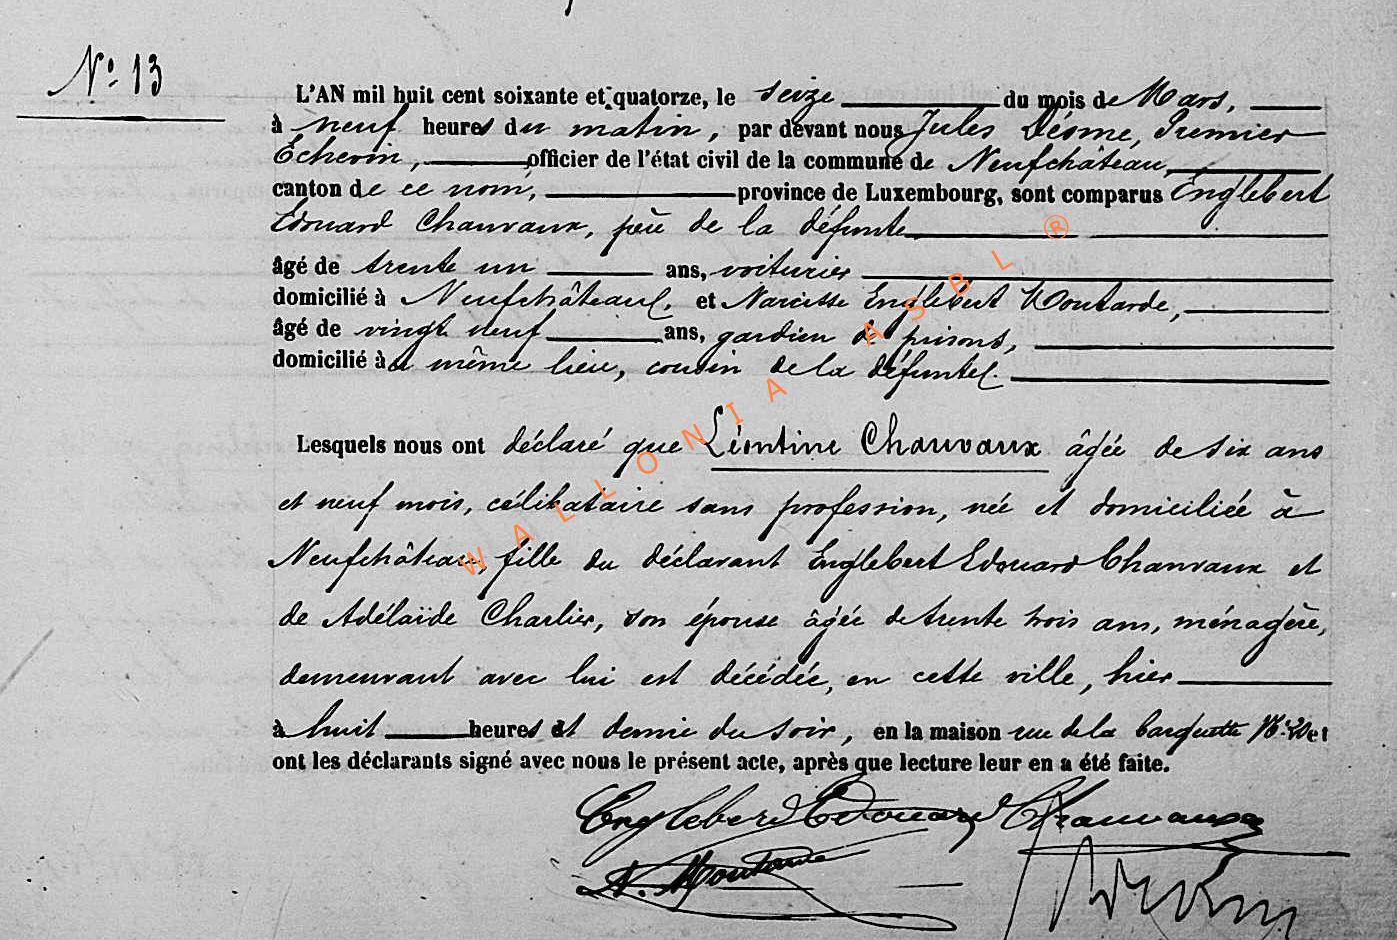 N° 13
L'AN mil huit cent soixante et quatorze, le seize du mois de Mars,
à neuf heures du matin, par devant nous Jules Désome, Premier
Échevin, officier de l'état civil de la commune de Neufchâteau,
canton de ce nom, province de Luxembourg, sont comparus Englebert
Edouard Chauvaux, père de la défunte
âgé de trente un ans, voiturier
domicilié à Neufchâteau, et Narcisse Englebert Moutarde,
âgé de vingt neuf ans, gardien de prisons,
domicilié à même lieu, cousin de la défunte.
Lesquels nous ont déclaré que Léontine Chauvaux âgée de six ans
et neuf mois, célibataire sans profession, née et domiciliée à
Neufchâteau, fille du déclarant Englebert Edouard Chauvaux et
de Adélaïde Charlier, son épouse âgée de trente trois ans, ménagère,
demeurant avec lui est décédée, en cette ville, hier
à huit heures et demie du soir, en la maison rue de la barquette N° 20 et
ont les déclarants signé avec nous le présent acte, après que lecture leur en a été faite.
Englebert Edouard Chauvaux
N. Moutarde
WALLONIA ASBL ®